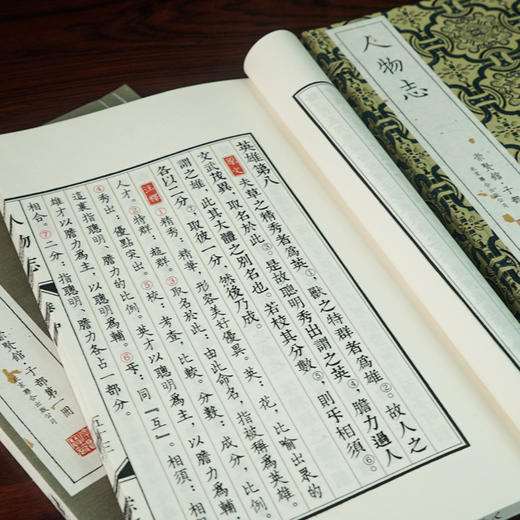 英雄第八
原文 夫草之精秀者爲英①，獸之特群者爲雄②。故人之
文武茂異，取名於此③。是故聰明秀出謂之英④，膽力過人
謂之雄，此其大體之別名也。若校其分數⑤，則牙相須⑥，
各以二分⑦，取彼一分，然後乃成。
注釋 ①精秀：精華，形容美好優異。英：花，比喻出眾的
人才。②特群：超群。③取名於此：由此命名，指被稱爲英雄。
④秀出：優點突出。⑤校：考查，比較。分數：成分，比例。
這裏指聰明、膽力的比例。英才以聰明爲主，以膽力爲輔；
雄才以膽力爲主，以聰明爲輔。⑥牙：同『互』。相須：
相合。⑦二分：指聰明、膽力各占一部分。
人物志
人物志
崇賢館·子部
賢館·子部第一冊
聯合出版公司